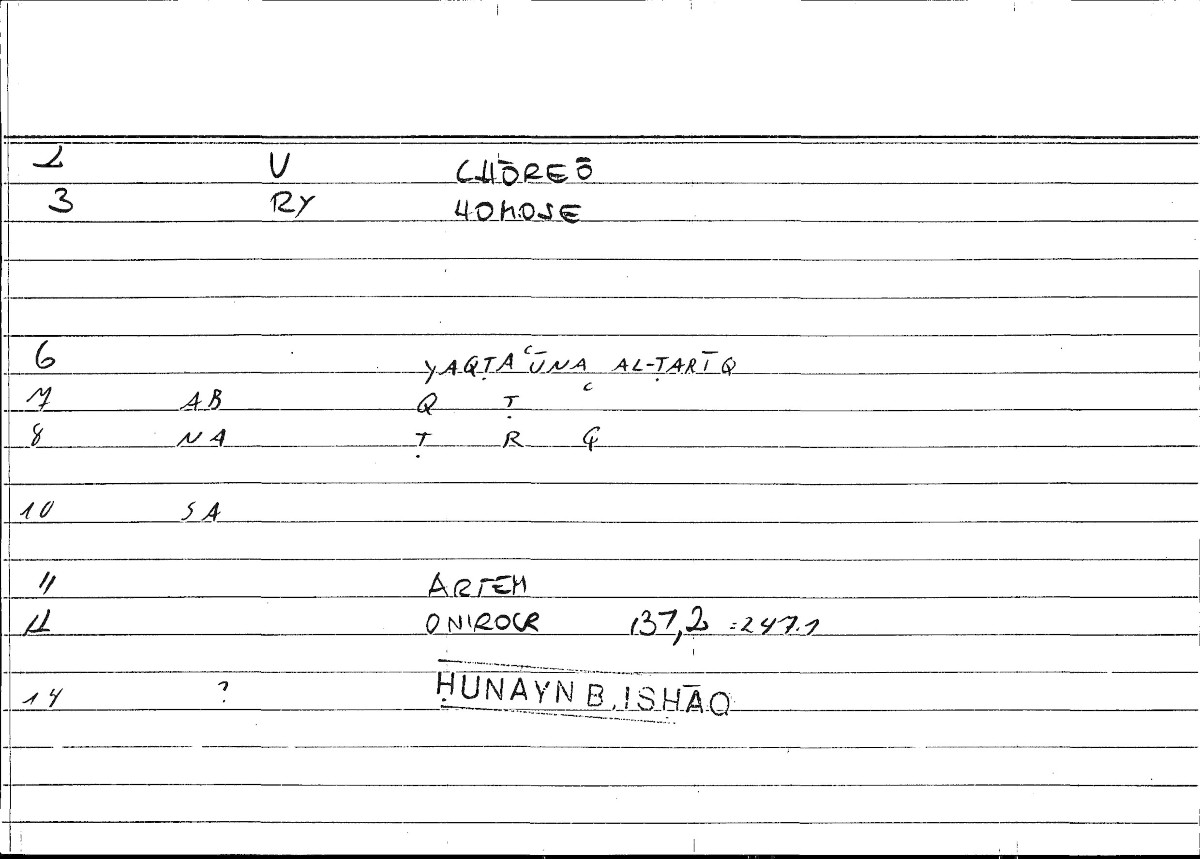 2 V CHŌREŌ
3 RY HOMOSE
6 YAQṬAʿŪNA AL-ṬARĪQ
7 AB Q Ṭ ʿ
8 NA Ṭ R Q
10 SA
11 ARTEM
12 ONIROCR 137,2 =247.1
14 ? ḤUNAYN B. ISḤĀQ